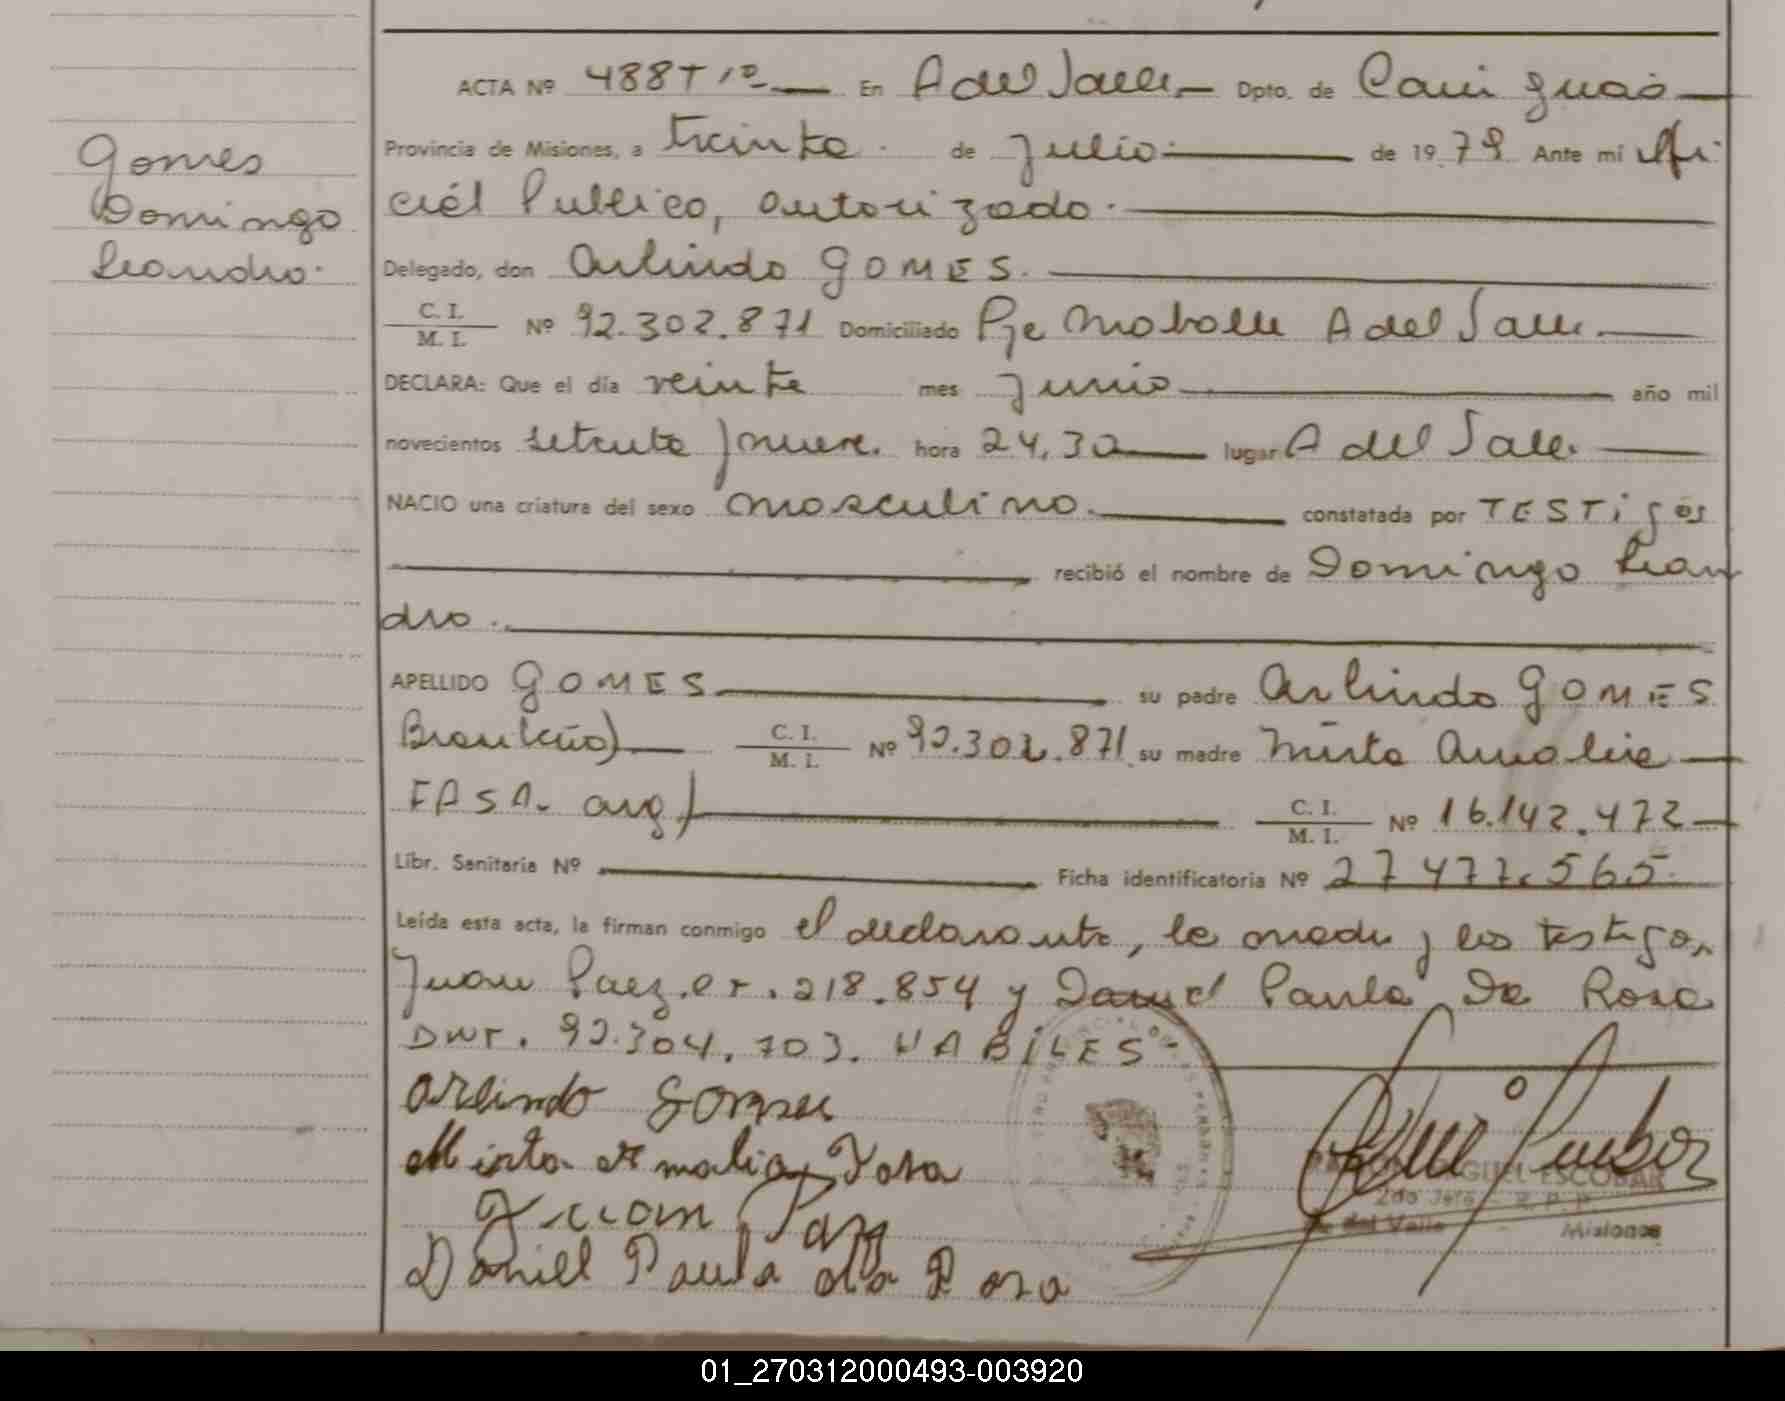 ACTA Nº 488 T 1º En A del Valle Dpto. de Cainguas
Gomes
Domingo
Leandro.
Provincia de Misiones, a treinta. de Julio. de 1979 Ante mi Ofi
cial Publico, autorizado.
Delegado, don Arlindo GOMES.
C. I. / M. I. Nº 92.302.871 Domiciliado Pje A del Valle
DECLARA: Que el día veinte mes Junio año mil
novecientos setenta y nueve. hora 24,30 lugar A del Valle
NACIO una criatura del sexo masculino. constatada por TESTigos
recibió el nombre de Domingo Lean
dro.
APELLIDO GOMES su padre Arlindo GOMES
Brasileño) C. I. / M. I. Nº 92.302.871 su madre Mirta Amalia
FASA. arg) C. I. / M. I. Nº 16.142.472
Libr. Sanitaria Nº Ficha identificatoria Nº 27 477.565.
Leída esta acta, la firman conmigo el declarante, la madre y los testigos,
Juan Paez. 218.854 y Daniel Paula Da Rosa
DNI. 92.304.703. HABiLES
Arlindo Gomes
Mirta Amalia
Juan Paez
Daniel Paula da Rosa
MIGUEL ESCOBAR
2do Jefe R. P. P.
A. del Valle Misiones
01_270312000493-003920